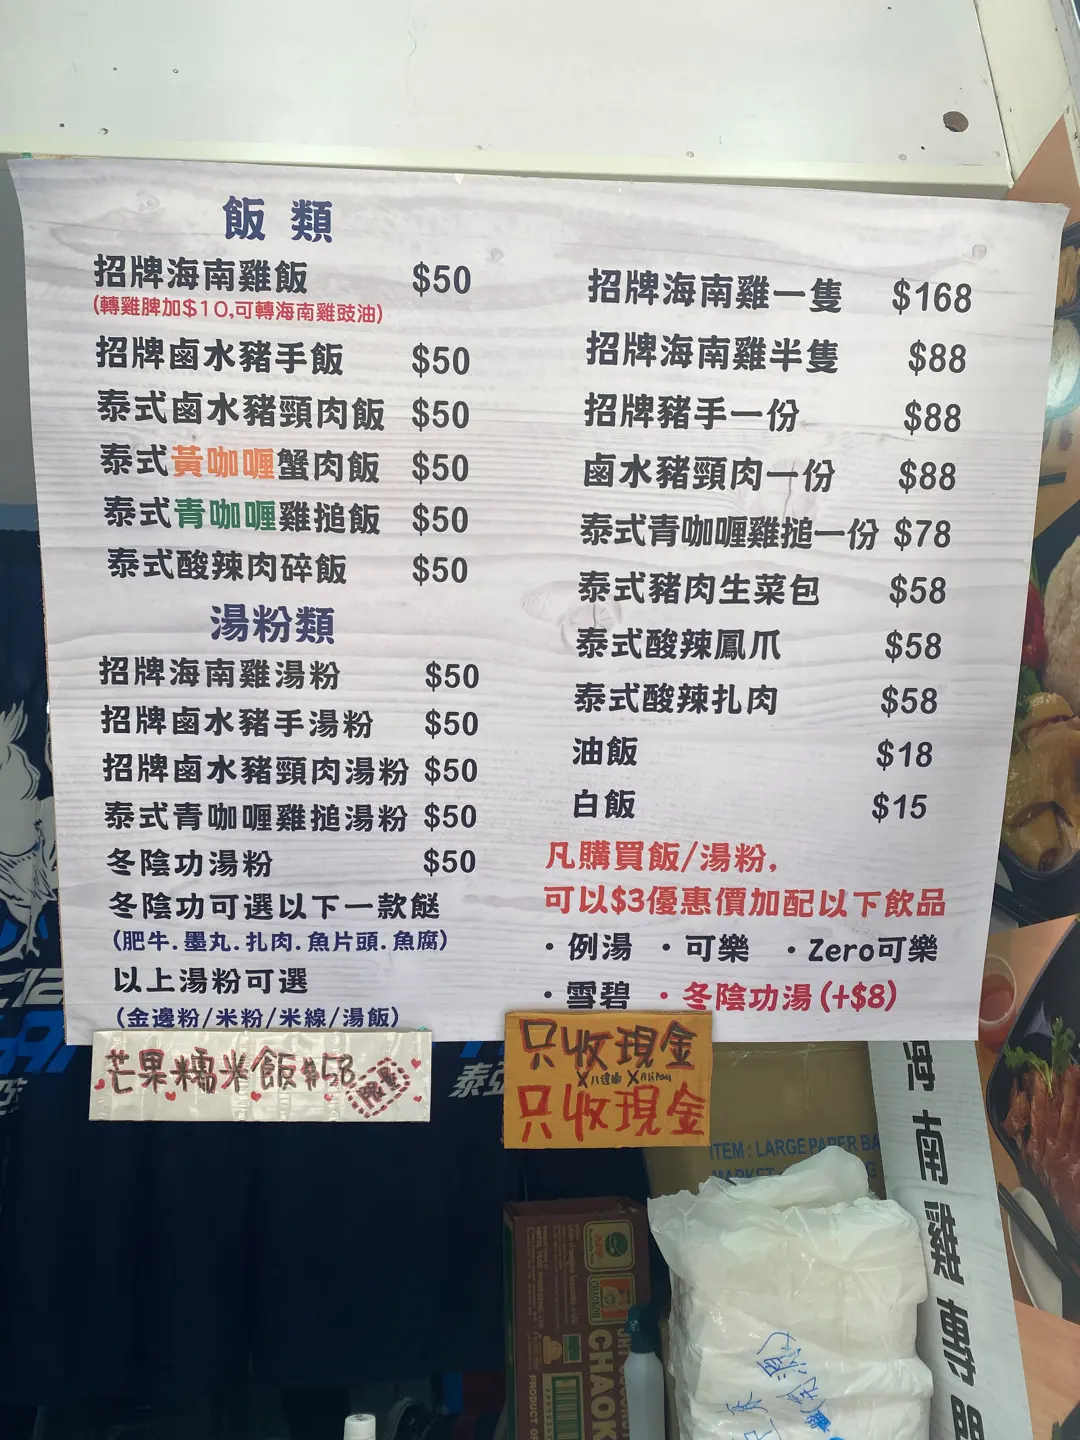 飯類
招牌海南雞飯 $50
(轉雞脾加$10,可轉海南雞豉油)
招牌鹵水豬手飯 $50
泰式鹵水豬頸肉飯 $50
泰式黃咖喱蟹肉飯 $50
泰式青咖喱雞搥飯 $50
泰式酸辣肉碎飯 $50
湯粉類
招牌海南雞湯粉 $50
招牌鹵水豬手湯粉 $50
招牌鹵水豬頸肉湯粉 $50
泰式青咖喱雞搥湯粉 $50
冬陰功湯粉 $50
冬陰功可選以下一款餸
(肥牛.墨丸.扎肉.魚片頭.魚腐)
以上湯粉可選
(金邊粉/米粉/米線/湯飯)
招牌海南雞一隻 $168
招牌海南雞半隻 $88
招牌豬手一份 $88
鹵水豬頸肉一份 $88
泰式青咖喱雞搥一份 $78
泰式豬肉生菜包 $58
泰式酸辣鳳爪 $58
泰式酸辣扎肉 $58
油飯 $18
白飯 $15
凡購買飯/湯粉,
可以$3優惠價加配以下飲品
·例湯 ·可樂 ·Zero可樂
·雪碧 ·冬陰功湯(+$8)
芒果糯米飯$58
限量
只收現金
X八達通 XAliPay
只收現金
ITEM : LARGE PAPER BA
MARKET
海南雞專門
CHAOK
PRODUCT O